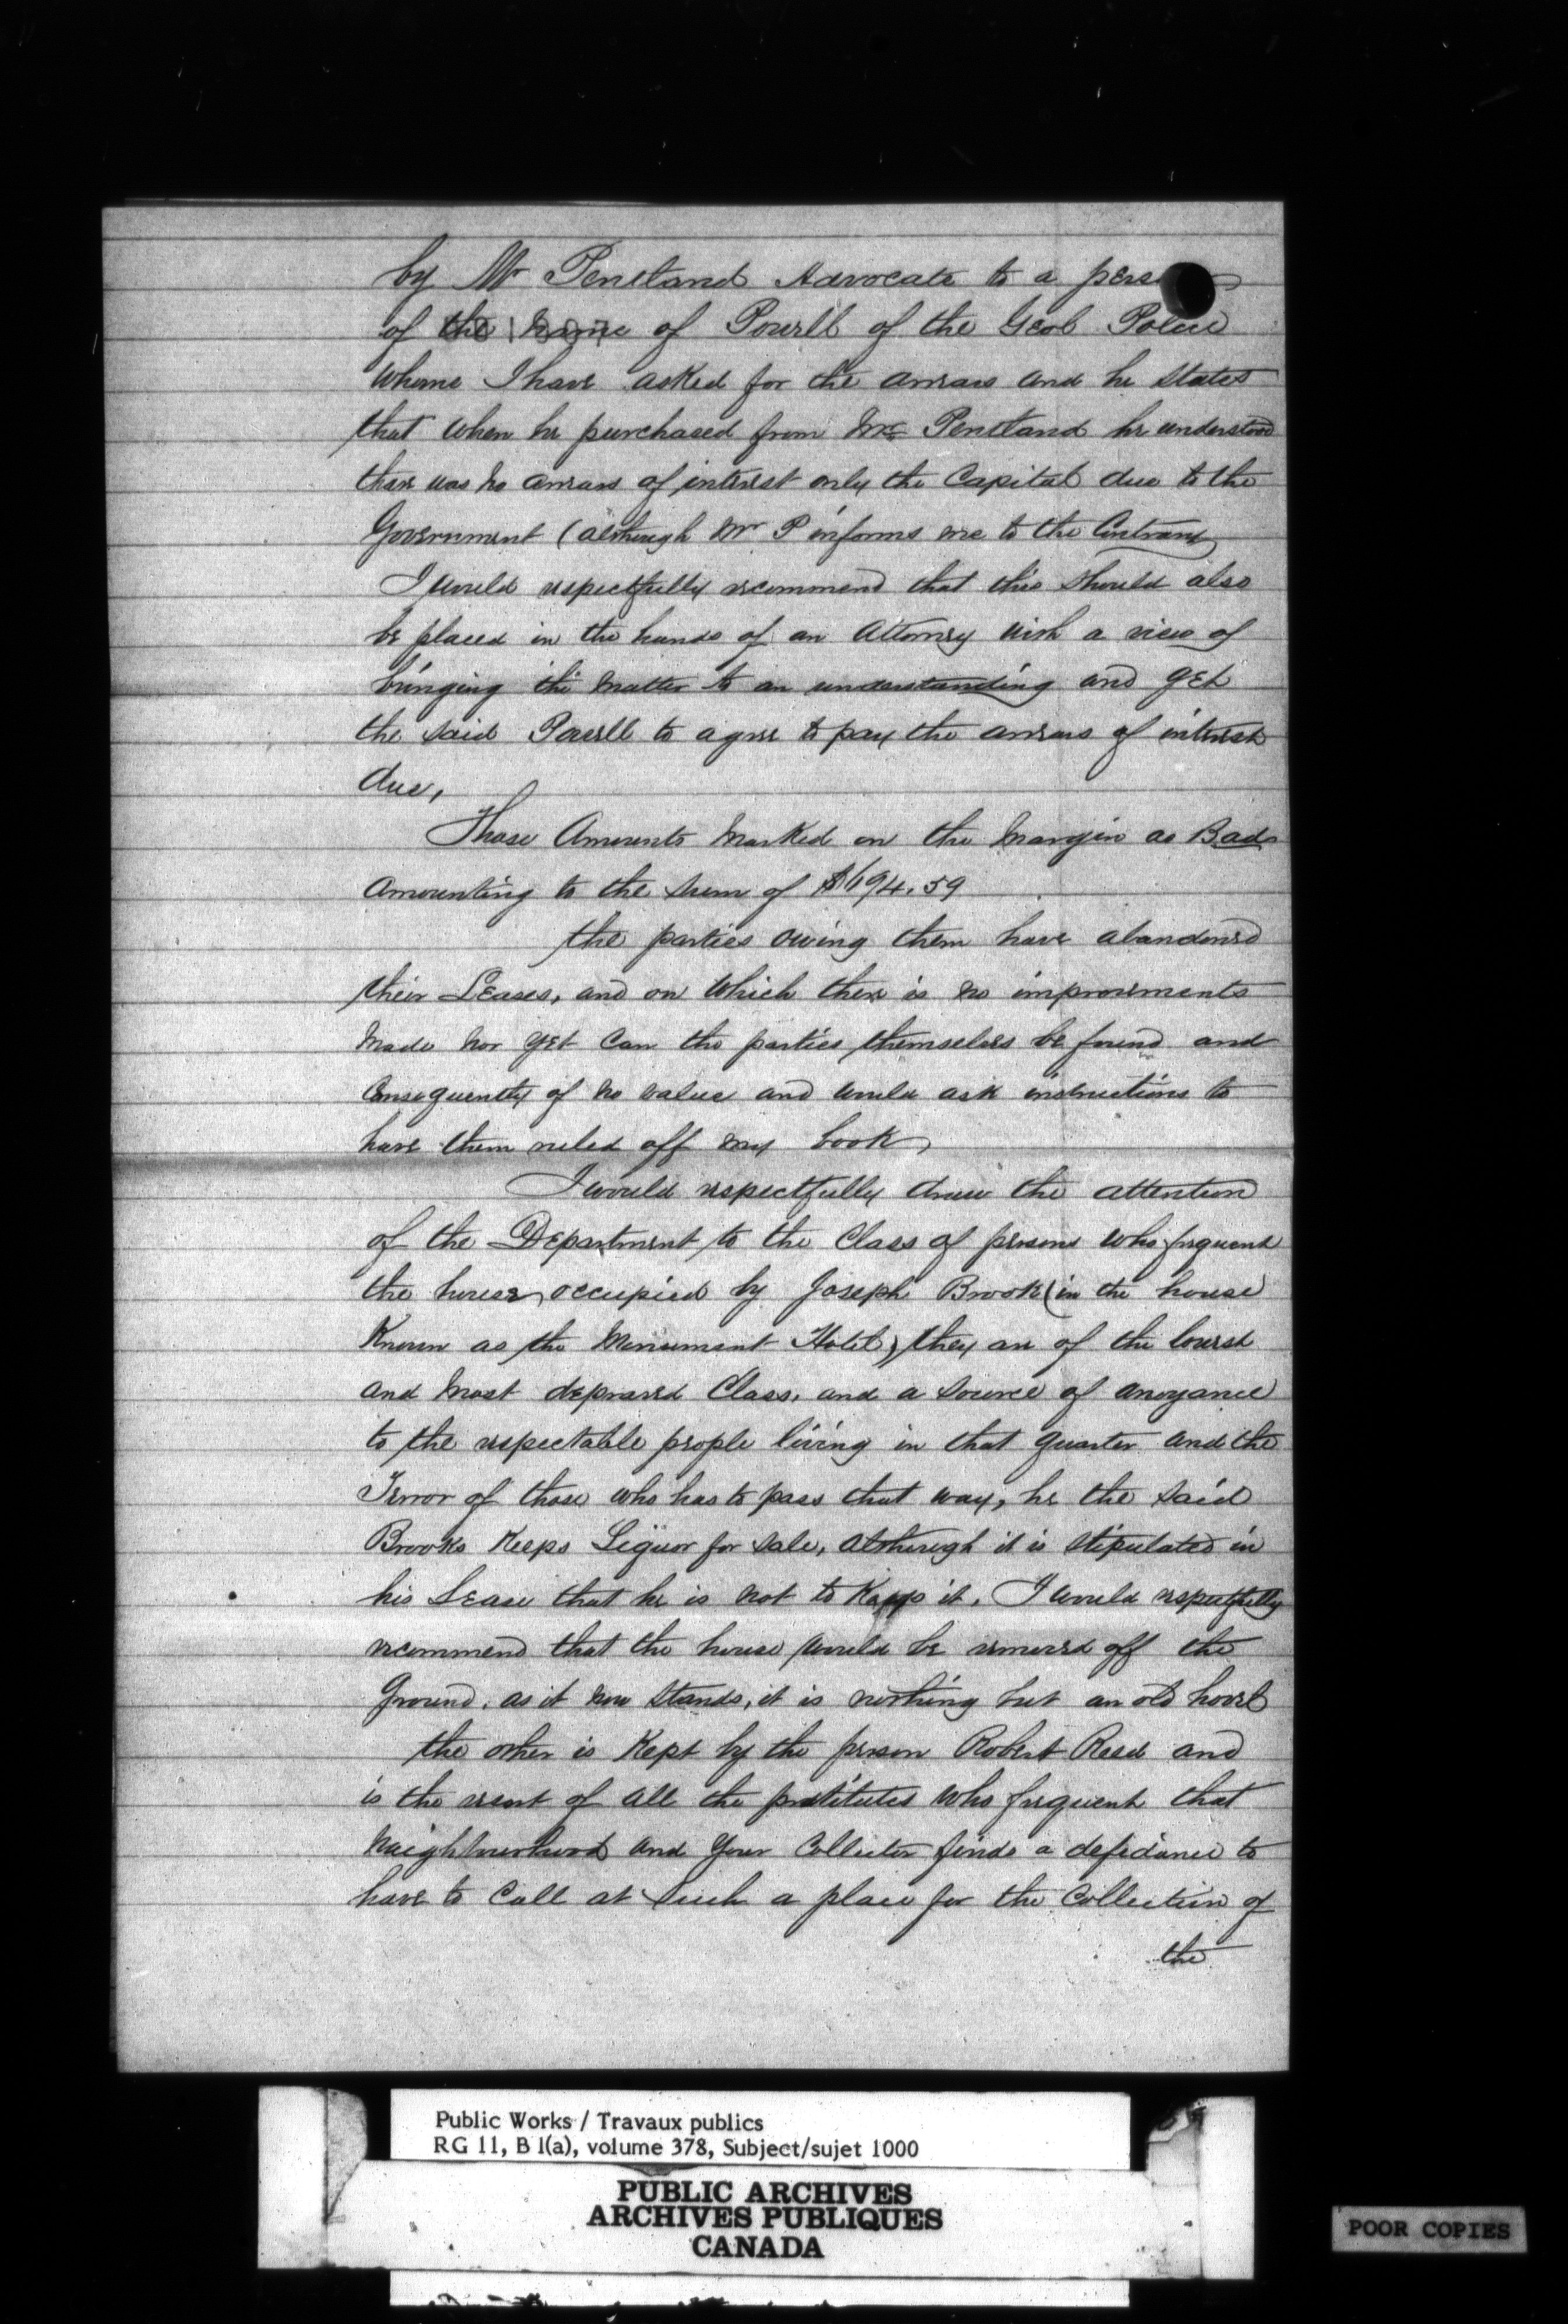 by Mr Pentland Advocate to a person
of the name of Powell of the Geol Police
whome I have asked for the arrears and he states
that when he purchased from Mr Pentland he understood
there was no arrears of interest only the Capital due to the
Government (although Mr P informs me to the Contrary
I would respectfully recommend that this should also
be placed in the hands of an Attorney with a view of
bringing the matter to an understanding and get
the said Powell to agree to pay the arrears of interest
due,
Those Amounts Marked on the Margin as Bad
Amounting to the sum of $694.59
the parties owing them have abandoned
their Leases, and on which there is no improvements
Made nor yet Can the parties themselves be found and
Consequently of no value and would ask instructions to
have them ruled off my book,
I would respectfully draw the attention
of the Department to the Class of persons who frequent
the houses occupied by Joseph Brook (in the house
Known as the Monument Hotel) they are of the lowest
and most depraved Class, and a source of anoyance
to the respectable people living in that quarter and the
Terror of those who has to pass that way, he the said
Brooks Keeps Liquor for sale, although it is stipulated in
his Lease that he is not to Keep it. I would respectfully
recommend that the house would be removed off the
Ground, as it now stands, it is nothing but an old hovel
the other is Kept by the person Robert Reed and
is the resort of all the prostitutes who frequent that
Neighbourhood and Your Collector finds a
have to Call at such a place for the Collection of
the
Public Works / Travaux publics
RG 11, B 1(a), volume 378, Subject/sujet 1000
PUBLIC ARCHIVES
ARCHIVES PUBLIQUES
CANADA
POOR COPIES